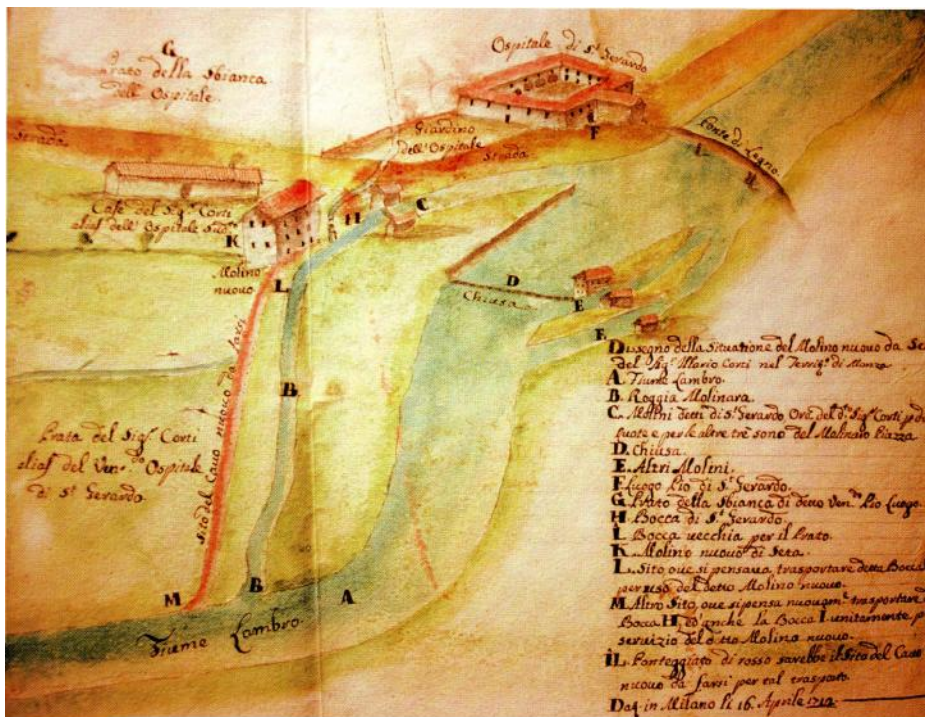 G.
Prato della Sbianca
dell'Ospitale.
Ospitale di S.t Gerardo
F
Strada
Giardino
dell'Ospitale
Strada
Ponte di Legno.
Case del Sig.r Corti
alias dell'Ospitale
K
H
C
Molino
nuovo
L
D
Chiusa
E
F.
B
Prata del Sig.r Corti
alias del Ven.do Ospitale
di S.t Gerardo
Sito del Cavo nuovo da farsi
M
B
A
Fiume Lambro.
Disegno della Situatione del Molino nuovo da
del Sig.r Mario Corti nel Territ.o di Monza
A. Fiume Lambro.
B. Roggia Molinara.
C. Molini detti di S.t Gerardo Ora del d.o Sig.r Corti
e per le altre trè sono del Molinaro Piazza
D. Chiusa.
E. Altri Molini.
F. Luogo Pio di S.t Gerardo.
G. Prato della Sbianca di detto Ven.do Pio Luogo.
H. Bocca di S.t Gerardo.
I. Bocca vecchia per il Prato.
K. Molino nuovo di Seta.
L. Sito, oue si pensaua trasportare detta Bocca
per uso del detto Molino nuovo.
M. Altro Sito, oue si pensa nuouam.te trasportare
Bocca H. ed'anche la Bocca I. unitamente
servizio del d.tto Molino nuovo.
Ponteggiato di rosso sarebbe il Sito del Cauo
nuovo da farsi per tal trasporto.
Dat. in Milano li 16. Aprile